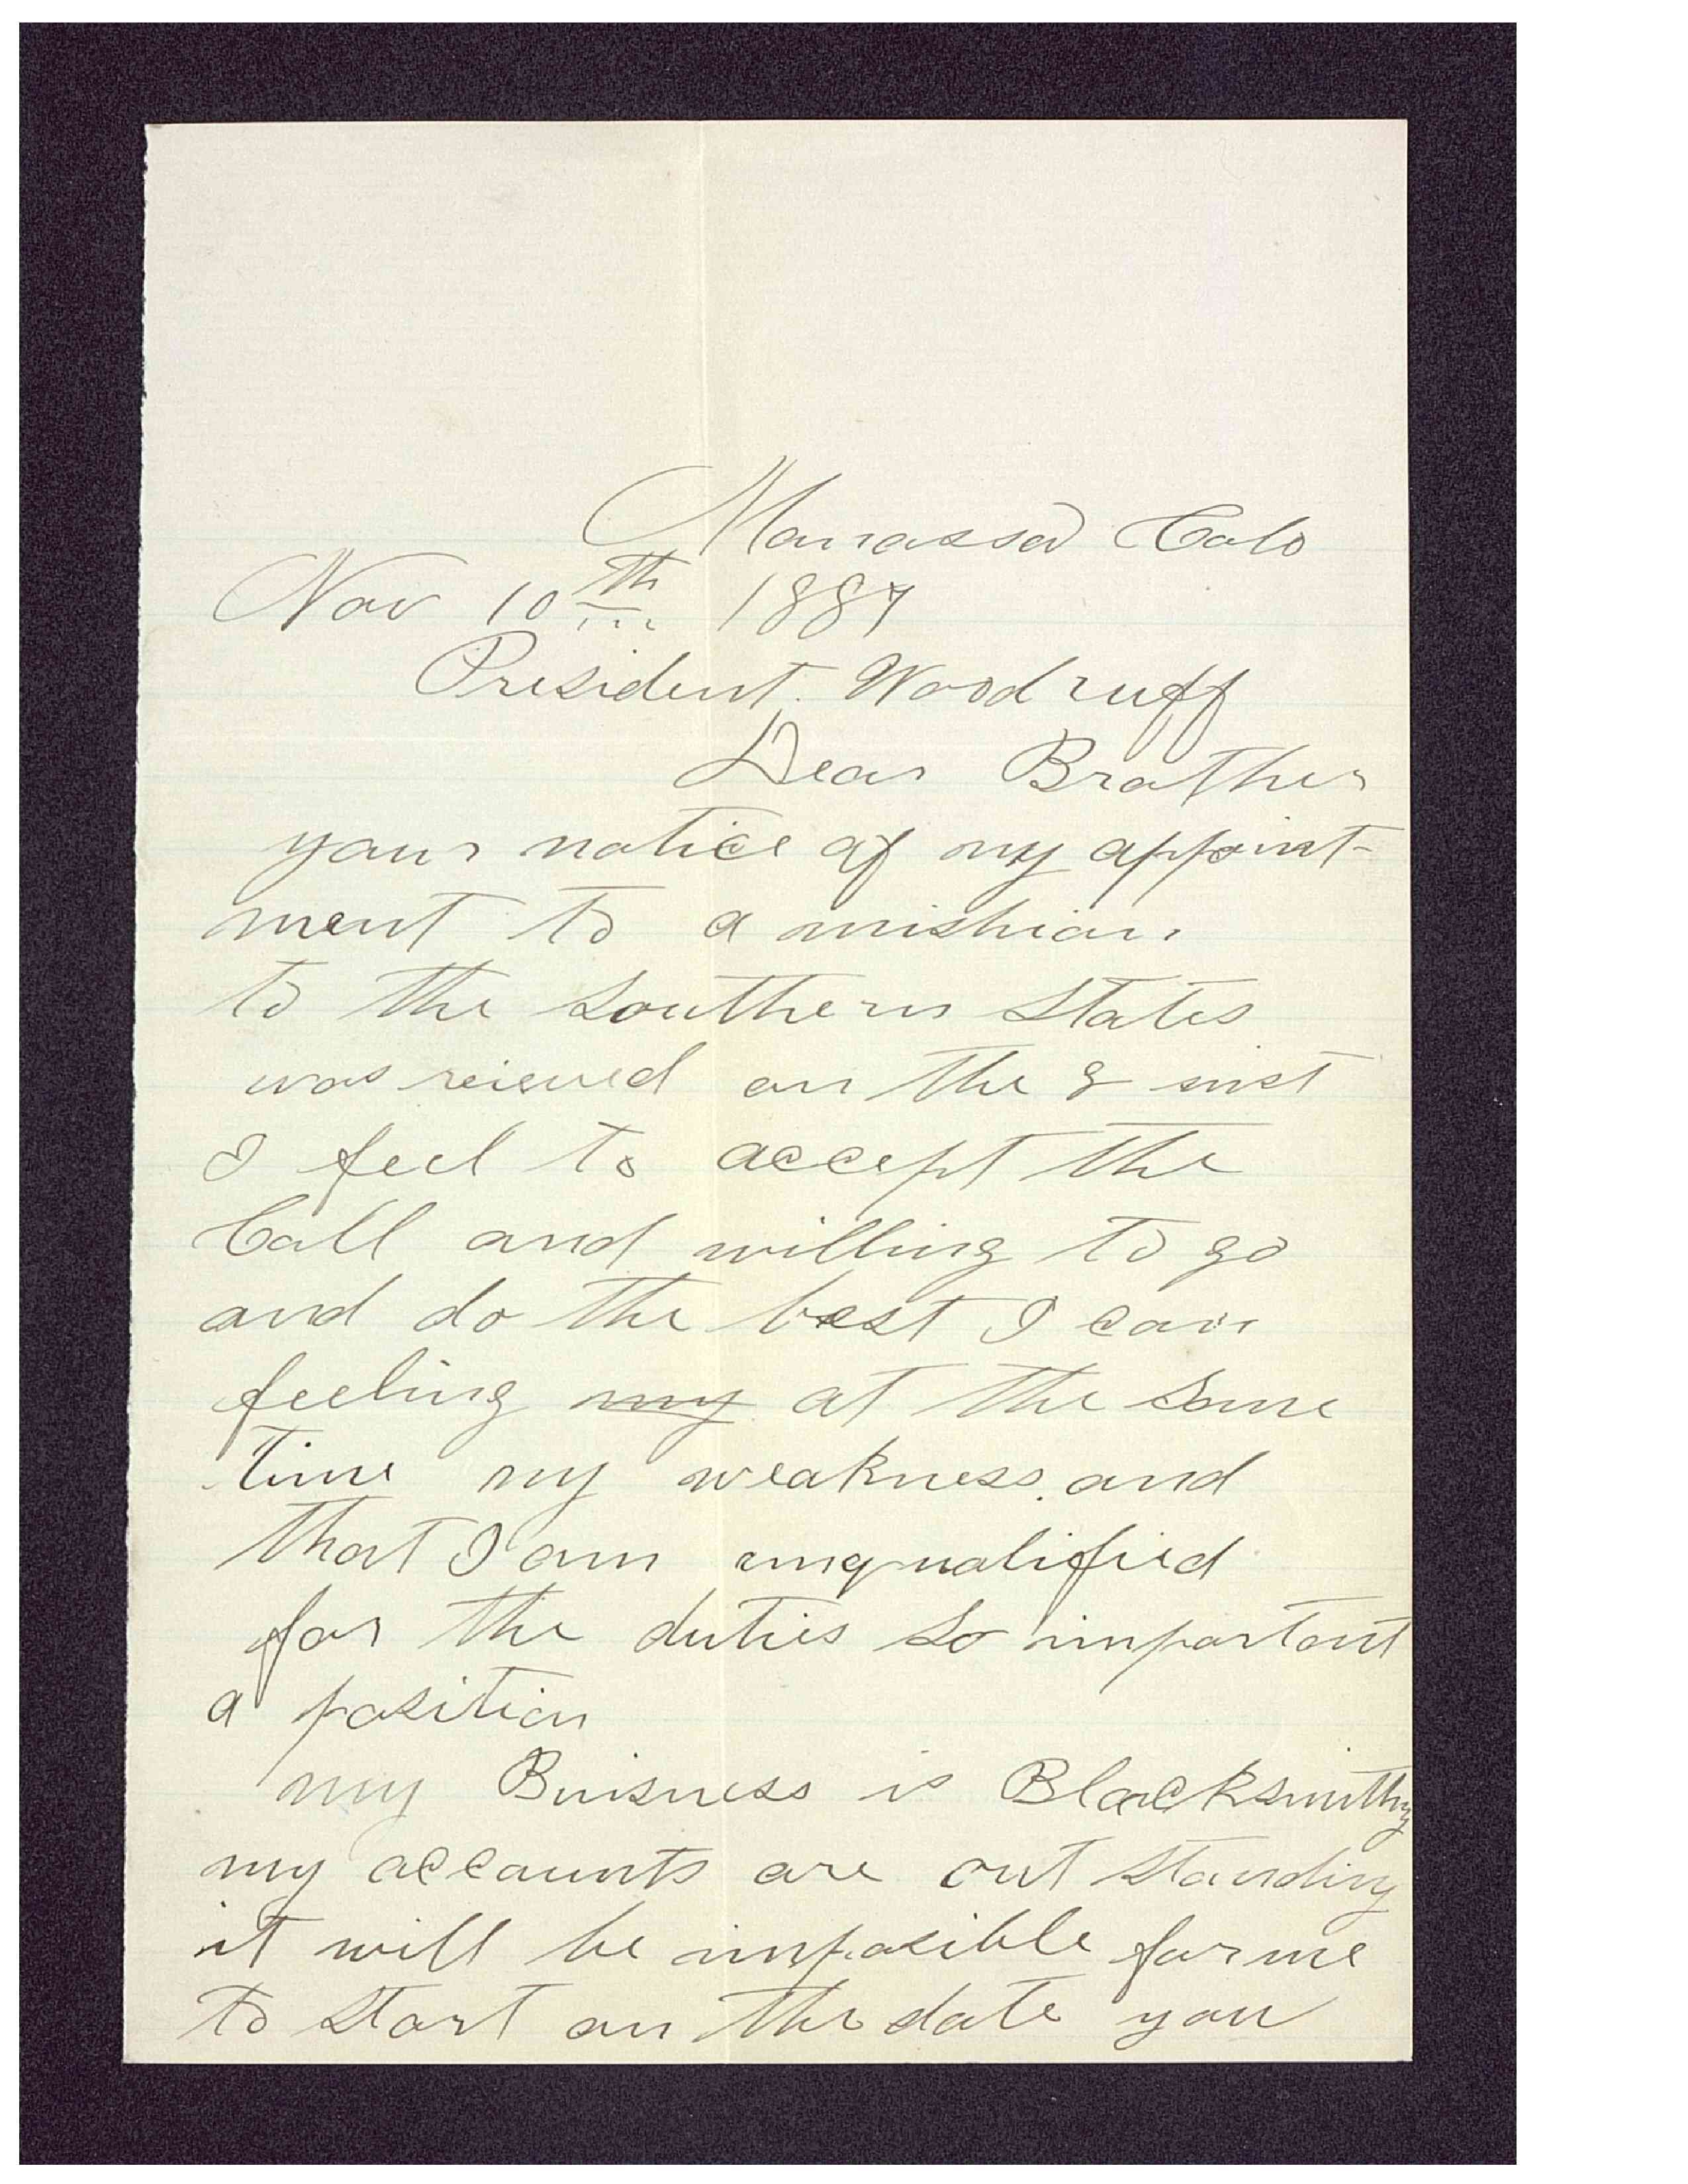 Manassa Colo
Nov 10th 1887
President. Woodruff
Dear Brother
your notice of my appoint-
ment to a mishion
to the Southern States
was reieved on the 8 inst
I feel to accept the
Call and willing to go
and do the best I can
feeling my at the same
time my weakness. and
that I am unqualified
for the duties so important
a position
my Buisness is Blacksmithing
my accounts are out standing
it will be imposible for me
to start on the date you